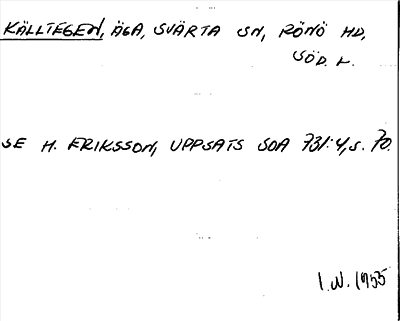 KÄLLTEGEN, ÄGA, SVÄRTA SN, RÖNÖ HD,
SÖD. L.
SE H. ERIKSSON, UPPSATS SOA 731:4, S. 70.
I.W. 1955